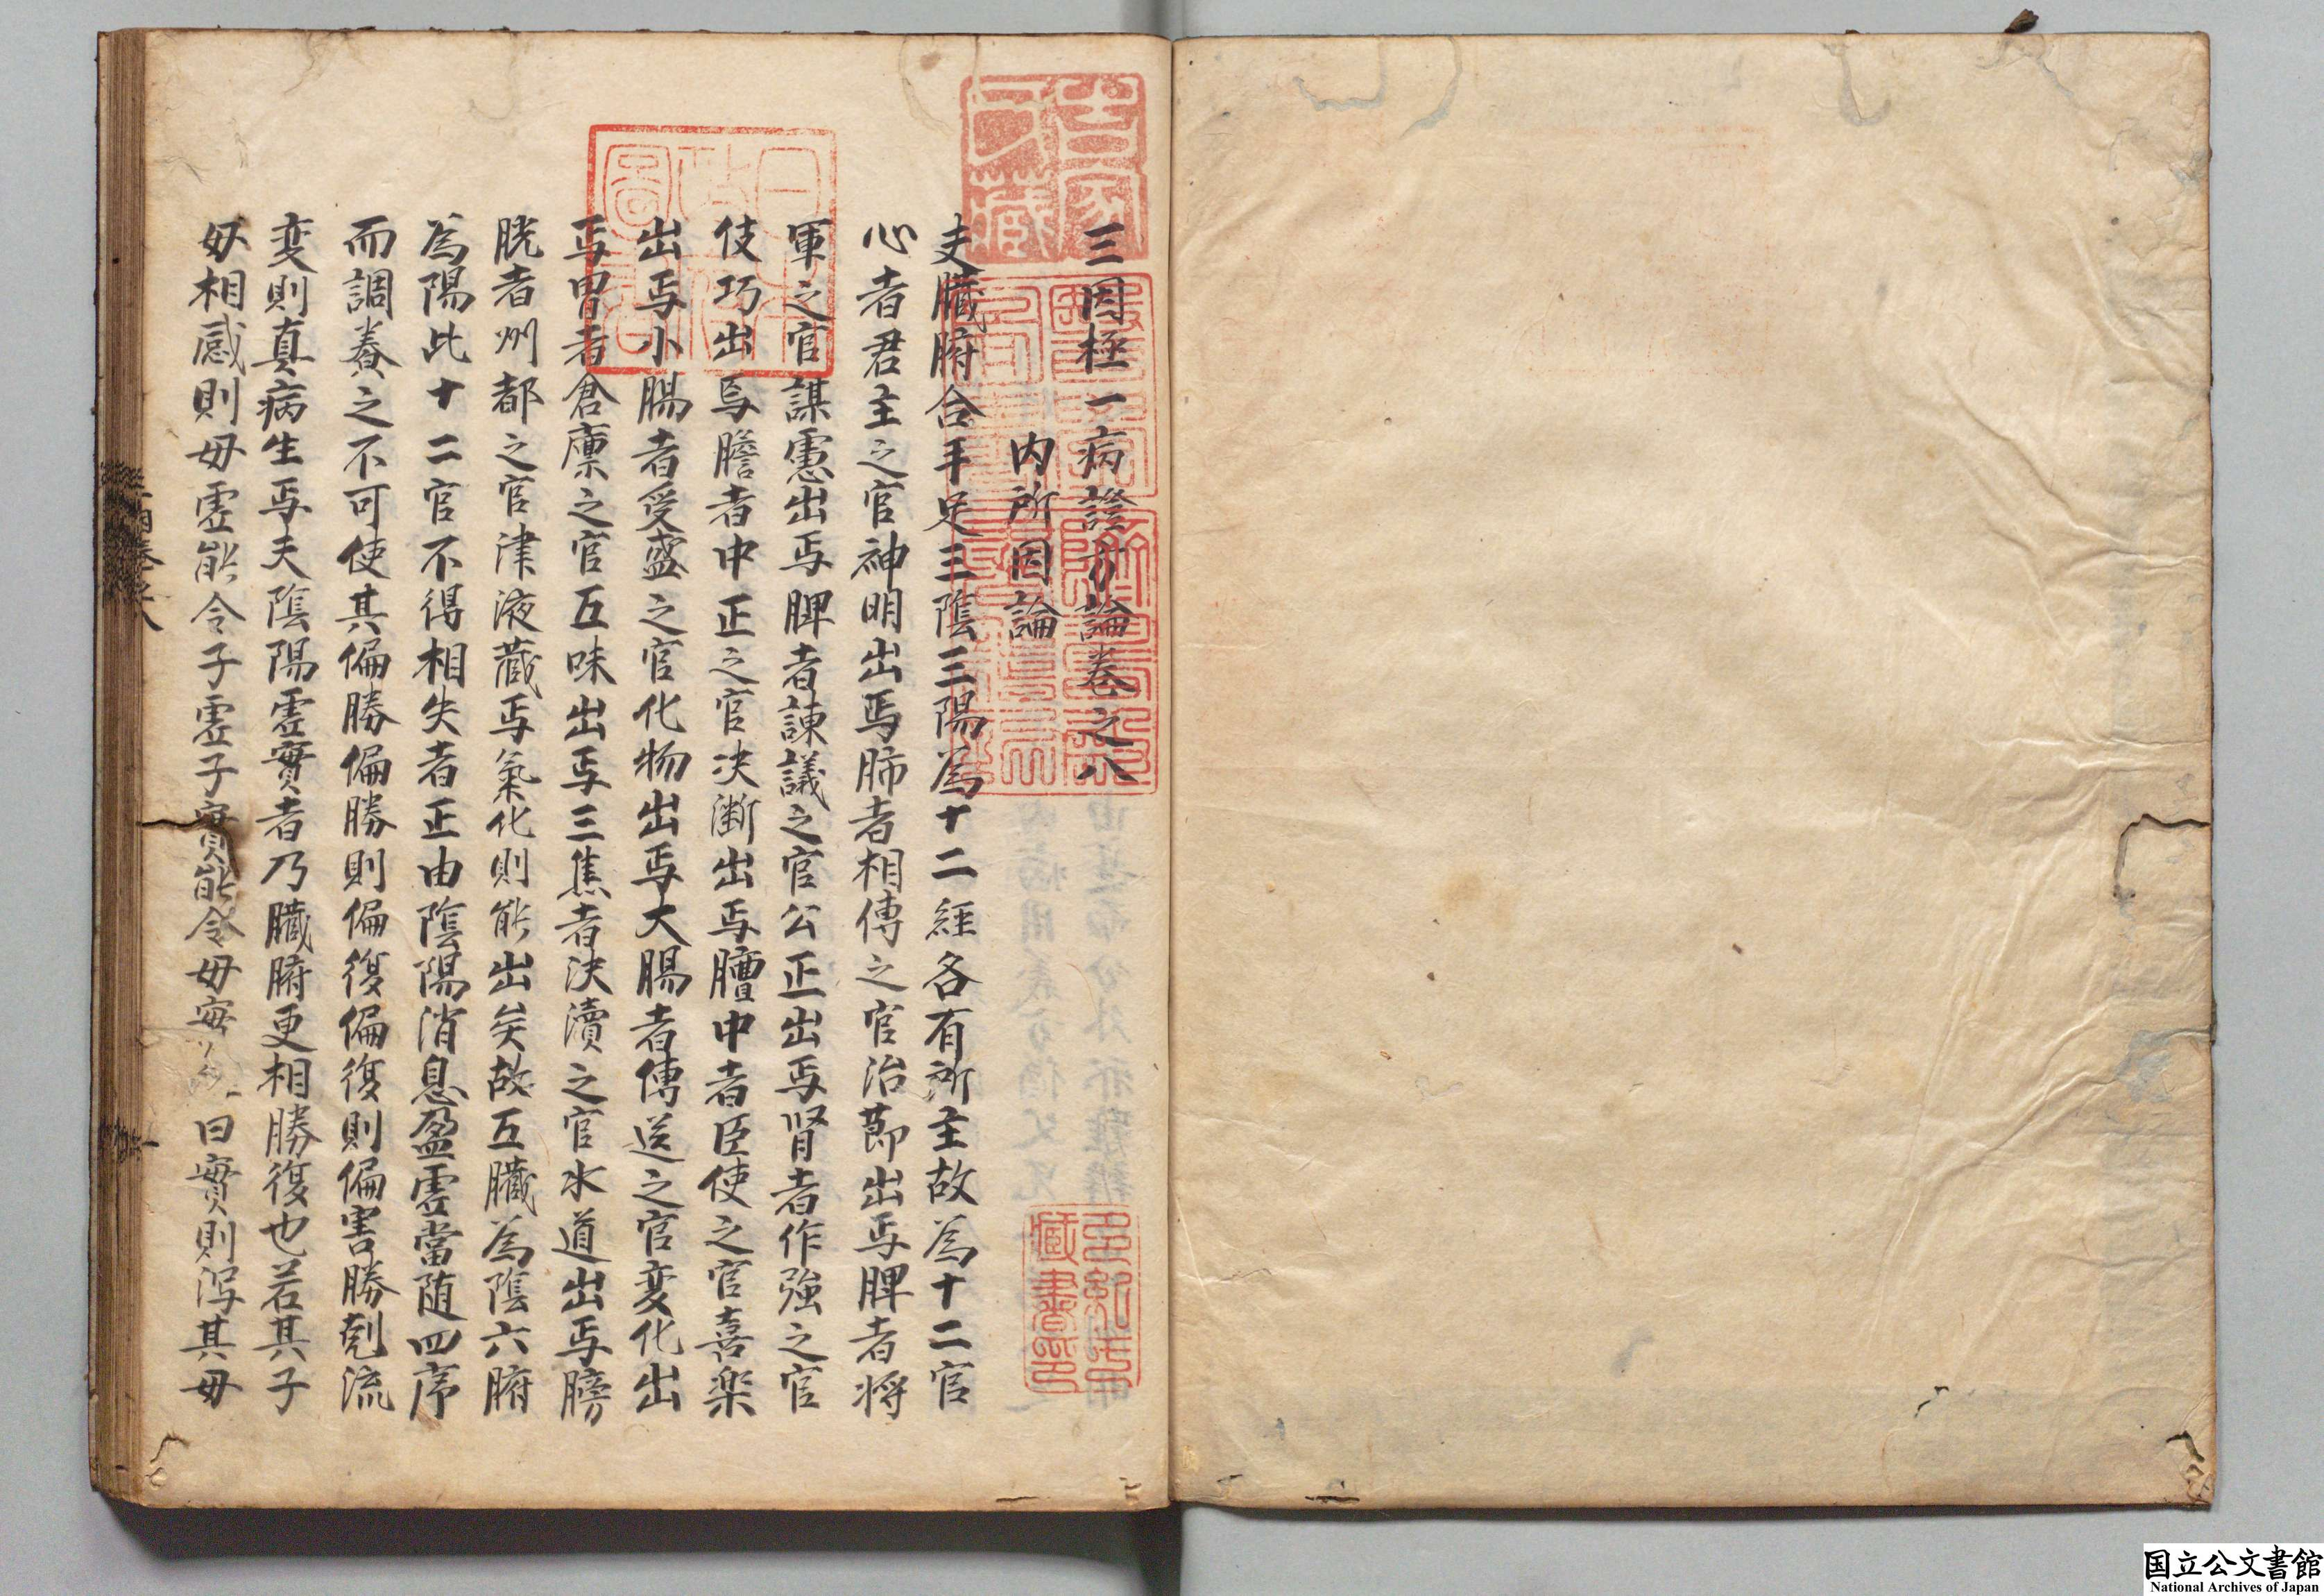 三因極一病證方論卷之八
内所因論
夫臓腑合手足三陰三陽為十二経各有所主故為十二官
心者君主之官神明出焉肺者相傅之官治節出焉脾者将
軍之官謀慮出焉脾者諌議之官公正出焉肾者作強之官
伎巧出焉膽者中正之官决断出焉膻中者臣使之官喜楽
出焉小腸者受盛之官化物出焉大腸者傳送之官変化出
焉胃者倉廩之官五味出焉三焦者决瀆之官水道出焉膀
胱者州都之官津液蔵焉氣化則能出矣故五臓為陰六腑
為陽此十二官不得相失者正由陰陽消息盈虚當随四序
而調養之不可使其偏勝偏勝則偏復偏復則偏害勝剋流
変則真病生焉夫陰陽虚實者乃臓腑更相勝復也若其子
母相感則母虚能令子虚子實能令母實曰實則泻其母
国立公文書館
National Archives of Japan